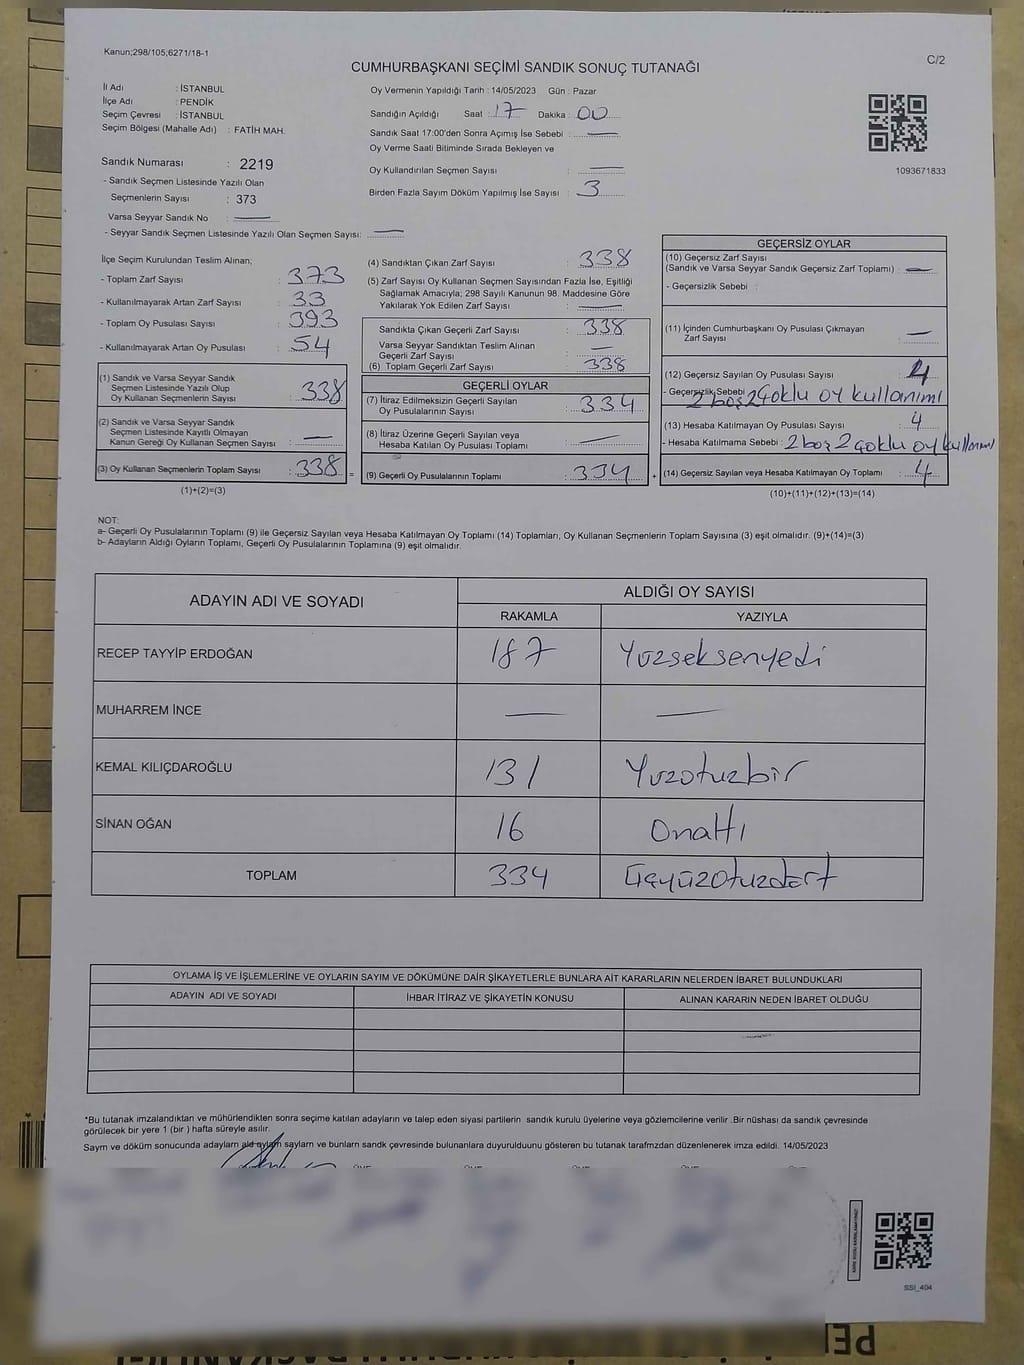 Kanun;298/105;6271/18-1
C/2
CUMHURBAŞKANI SEÇİMİ SANDIK SONUÇ TUTANAĞI
İl Adı : İSTANBUL
İlçe Adı : PENDİK
Seçim Çevresi : İSTANBUL
Seçim Bölgesi (Mahalle Adı) : FATİH MAH.
Sandık Numarası : 2219
- Sandık Seçmen Listesinde Yazılı Olan
Seçmenlerin Sayısı : 373
Varsa Seyyar Sandık No : —
- Seyyar Sandık Seçmen Listesinde Yazılı Olan Seçmen Sayısı: —
Oy Vermenin Yapıldığı Tarih : 14/05/2023 Gün : Pazar
Sandığın Açıldığı Saat : 17 Dakika : 00
Sandık Saat 17:00'den Sonra Açımış İse Sebebi : —
Oy Verme Saati Bitiminde Sırada Bekleyen ve
Oy Kullandırılan Seçmen Sayısı : —
Birden Fazla Sayım Döküm Yapılmış İse Sayısı : 3
1093671833
İlçe Seçim Kurulundan Teslim Alınan;
- Toplam Zarf Sayısı : 373
- Kullanılmayarak Artan Zarf Sayısı : 33
- Toplam Oy Pusulası Sayısı : 393
- Kullanılmayarak Artan Oy Pusulası : 54
(1) Sandık ve Varsa Seyyar Sandık
Seçmen Listesinde Yazılı Olup
Oy Kullanan Seçmenlerin Sayısı : 338
(2) Sandık ve Varsa Seyyar Sandık
Seçmen Listesinde Kayıtlı Olmayan
Kanun Gereği Oy Kullanan Seçmen Sayısı : —
(3) Oy Kullanan Seçmenlerin Toplam Sayısı : 338 =
(1)+(2)=(3)
(4) Sandıktan Çıkan Zarf Sayısı : 338
(5) Zarf Sayısı Oy Kullanan Seçmen Sayısından Fazla İse, Eşitliği
Sağlamak Amacıyla; 298 Sayılı Kanunun 98. Maddesine Göre
Yakılarak Yok Edilen Zarf Sayısı : —
Sandıkta Çıkan Geçerli Zarf Sayısı : 338
Varsa Seyyar Sandıktan Teslim Alınan
Geçerli Zarf Sayısı : —
(6) Toplam Geçerli Zarf Sayısı : 338
GEÇERLİ OYLAR
(7) İtiraz Edilmeksizin Geçerli Sayılan
Oy Pusulalarının Sayısı : 334
(8) İtiraz Üzerine Geçerli Sayılan veya
Hesaba Katılan Oy Pusulalarının Toplamı : —
(9) Geçerli Oy Pusulalarının Toplamı : 334 +
GEÇERSİZ OYLAR
(10) Geçersiz Zarf Sayısı
(Sandık ve Varsa Seyyar Sandık Geçersiz Zarf Toplamı) : —
- Geçersizlik Sebebi :
(11) İçinden Cumhurbaşkanı Oy Pusulası Çıkmayan
Zarf Sayısı : —
(12) Geçersiz Sayılan Oy Pusulası Sayısı : 4
- Geçersizlik Sebebi : 2 boş 2 çoklu oy kullanımı
(13) Hesaba Katılmayan Oy Pusulası Sayısı : 4
- Hesaba Katılmama Sebebi : 2 boş 2 çoklu oy kullanımı
(14) Geçersiz Sayılan veya Hesaba Katılmayan Oy Toplamı : 4
(10)+(11)+(12)+(13)=(14)
NOT:
a- Geçerli Oy Pusulalarının Toplamı (9) ile Geçersiz Sayılan veya Hesaba Katılmayan Oy Toplamı (14) Toplamları, Oy Kullanan Seçmenlerin Toplam Sayısına (3) eşit olmalıdır. (9)+(14)=(3)
b- Adayların Aldığı Oyların Toplamı, Geçerli Oy Pusulalarının Toplamına (9) eşit olmalıdır.
ADAYIN ADI VE SOYADI ALDIĞI OY SAYISI
RAKAMLA YAZIYLA
RECEP TAYYİP ERDOĞAN 187 Yüzseksenyedi
MUHARREM İNCE — —
KEMAL KILIÇDAROĞLU 131 Yüzotuzbir
SİNAN OĞAN 16 Onaltı
TOPLAM 334 Üçyüzotuzdört
OYLAMA İŞ VE İŞLEMLERİNE VE OYLARIN SAYIM VE DÖKÜMÜNE DAİR ŞİKAYETLERLE BUNLARA AİT KARARLARIN NELERDEN İBARET BULUNDUKLARI
ADAYIN ADI VE SOYADI İHBAR İTİRAZ VE ŞİKAYETİN KONUSU ALINAN KARARIN NEDEN İBARET OLDUĞU
*Bu tutanak imzalandıktan ve mühürlendikten sonra seçime katılan adayların ve talep eden siyasi partilerin sandık kurulu üyelerine veya gözlemcilerine verilir .Bir nüshası da sandık çevresinde
görülecek bir yere 1 (bir ) hafta süreyle asılır.
Sayım ve döküm sonucunda adayların ald oyların sayları ve bunların sandk çevresinde bulunanlara duyurulduunu gösteren bu tutanak tarafmzdan düzenlenerek imza edildi. 14/05/2023
SSI_404